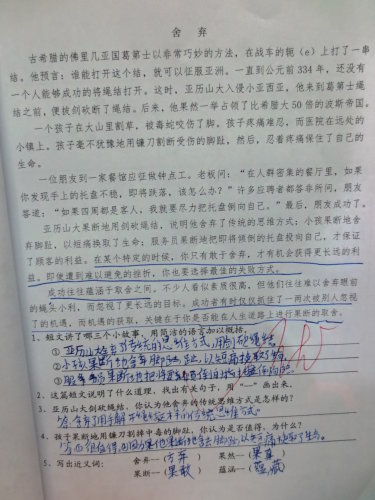 舍 弃
古希腊的佛里几亚国葛第士以非常巧妙的方法，在战车的轭（e）上打了一串
结。他预言：谁能打开这个结，就可以征服亚洲。一直到公元前 334 年，还没有
一个人能够成功的将绳结打开。这时，亚历山大入侵小亚西亚，他来到葛第士绳
结之前，便拔剑砍断了绳结。后来，他果然一举占领了比希腊大 50 倍的波斯帝国。
一个孩子在大山里割草，被毒蛇咬伤了脚。孩子疼痛难忍，而医院在远处的
小镇上。孩子毫不犹豫地用镰刀割断受伤的脚趾，然后，忍着疼痛保住了自己的
生命。
一位朋友到一家餐馆应征做钟点工。老板问：“在人群密集的餐厅里，如果
你发现手上的托盘不稳，即将跌落，该怎么办？”许多应聘者都答非所问，朋友
答道：“如果四周都是客人，我就要尽力把托盘倒向自己。”最后，朋友成功了。
亚历山大果断地用剑砍断绳结，说明他舍弃了传统的思维方式；小孩果断地舍
弃脚趾，以短痛换取了生命；服务员果断地把即将倾倒的托盘投向自己，才保证
了顾客的利益。在某个特定的时候，你只有敢于舍弃，才有机会获得更长远的利
益。即使遭到难以避免的挫折，你也要选择最佳的失败方式。
成功往往蕴涵于取舍之间。不少人看似素质很高，但他们往往难以舍弃眼前
的蝇头小利，而忽视了更长远的目标。成功者有时仅仅抓住了一两次被别人忽视
了的机遇，而机遇的获取，关键在于你是否能在人生道路上进行果断的取舍。
1、短文讲了哪三个小故事，用简洁的语言加以概括。
① 亚历山大舍弃了传统的思维方式，用剑砍绳结
② 小孩果断地舍弃脚趾，以短痛换取生命
2、这篇短文说明了什么道理，找出有关句子，用“—”画出来。
3、亚历山大剑砍绳结，你认为他舍弃的传统思维方式是怎样的？
4、孩子果断地用镰刀割掉中毒的脚趾，你认为是否值得，为什么？
5、写出近义词： 舍弃—（放弃） 果然—（果真）
果断—（果敢） 蕴涵—（蕴藏）